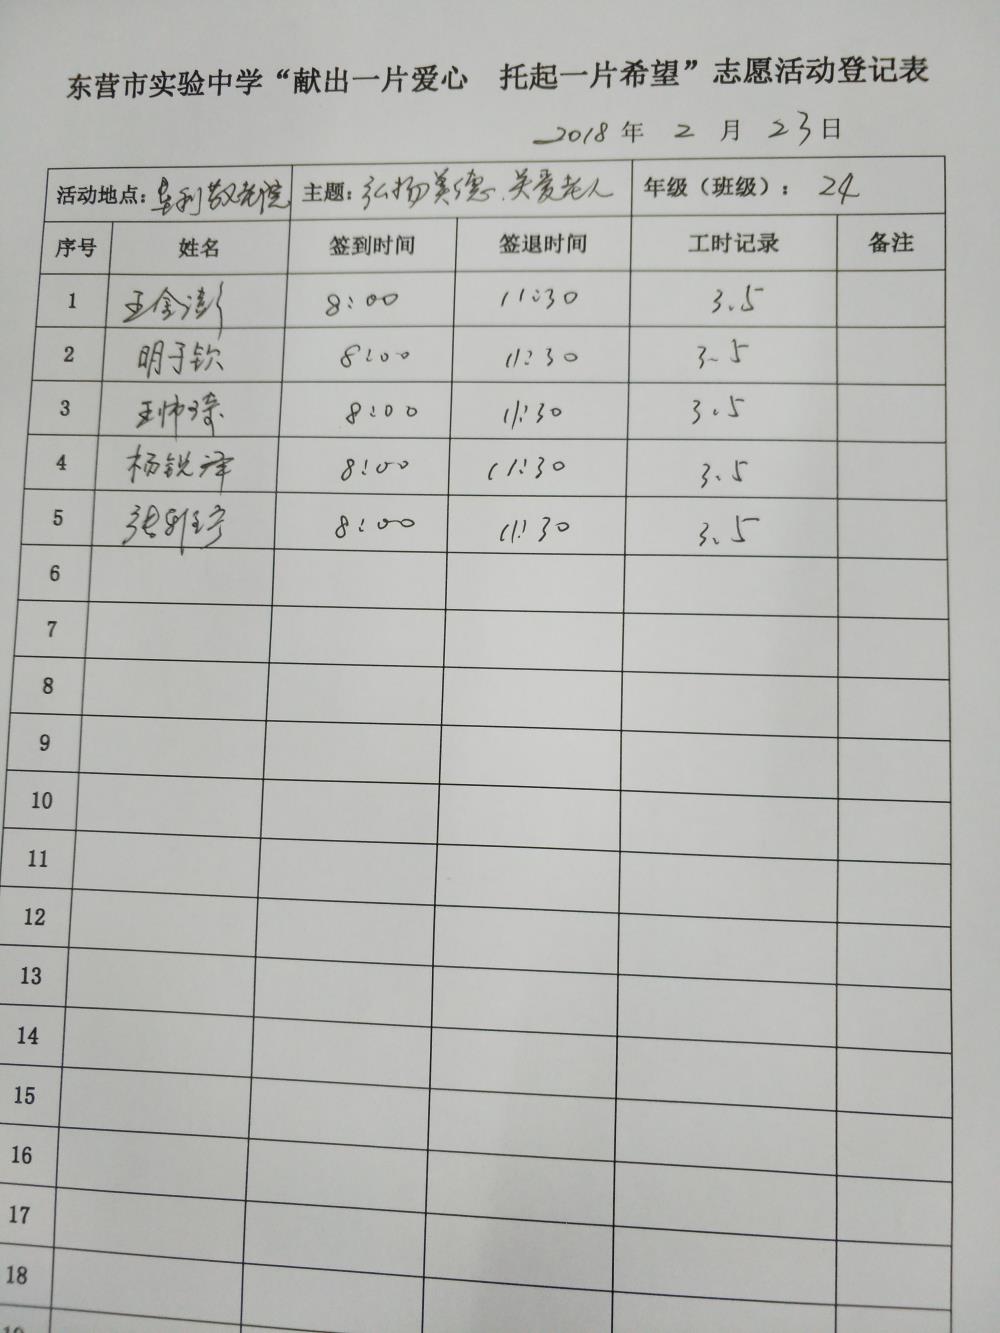 东营市实验中学“献出一片爱心 托起一片希望”志愿活动登记表
2018 年 2 月 23 日
活动地点：垦利敬老院 主题：弘扬美德.关爱老人 年级（班级）： 24
序号 姓名 签到时间 签退时间 工时记录 备注
1 王金澎 8:00 11:30 3.5
2 明子钦 8:00 11:30 3.5
3 王帅琦 8:00 11:30 3.5
4 杨锐泽 8:00 11:30 3.5
5 张 8:00 11:30 3.5
6
7
8
9
10
11
12
13
14
15
16
17
18
19